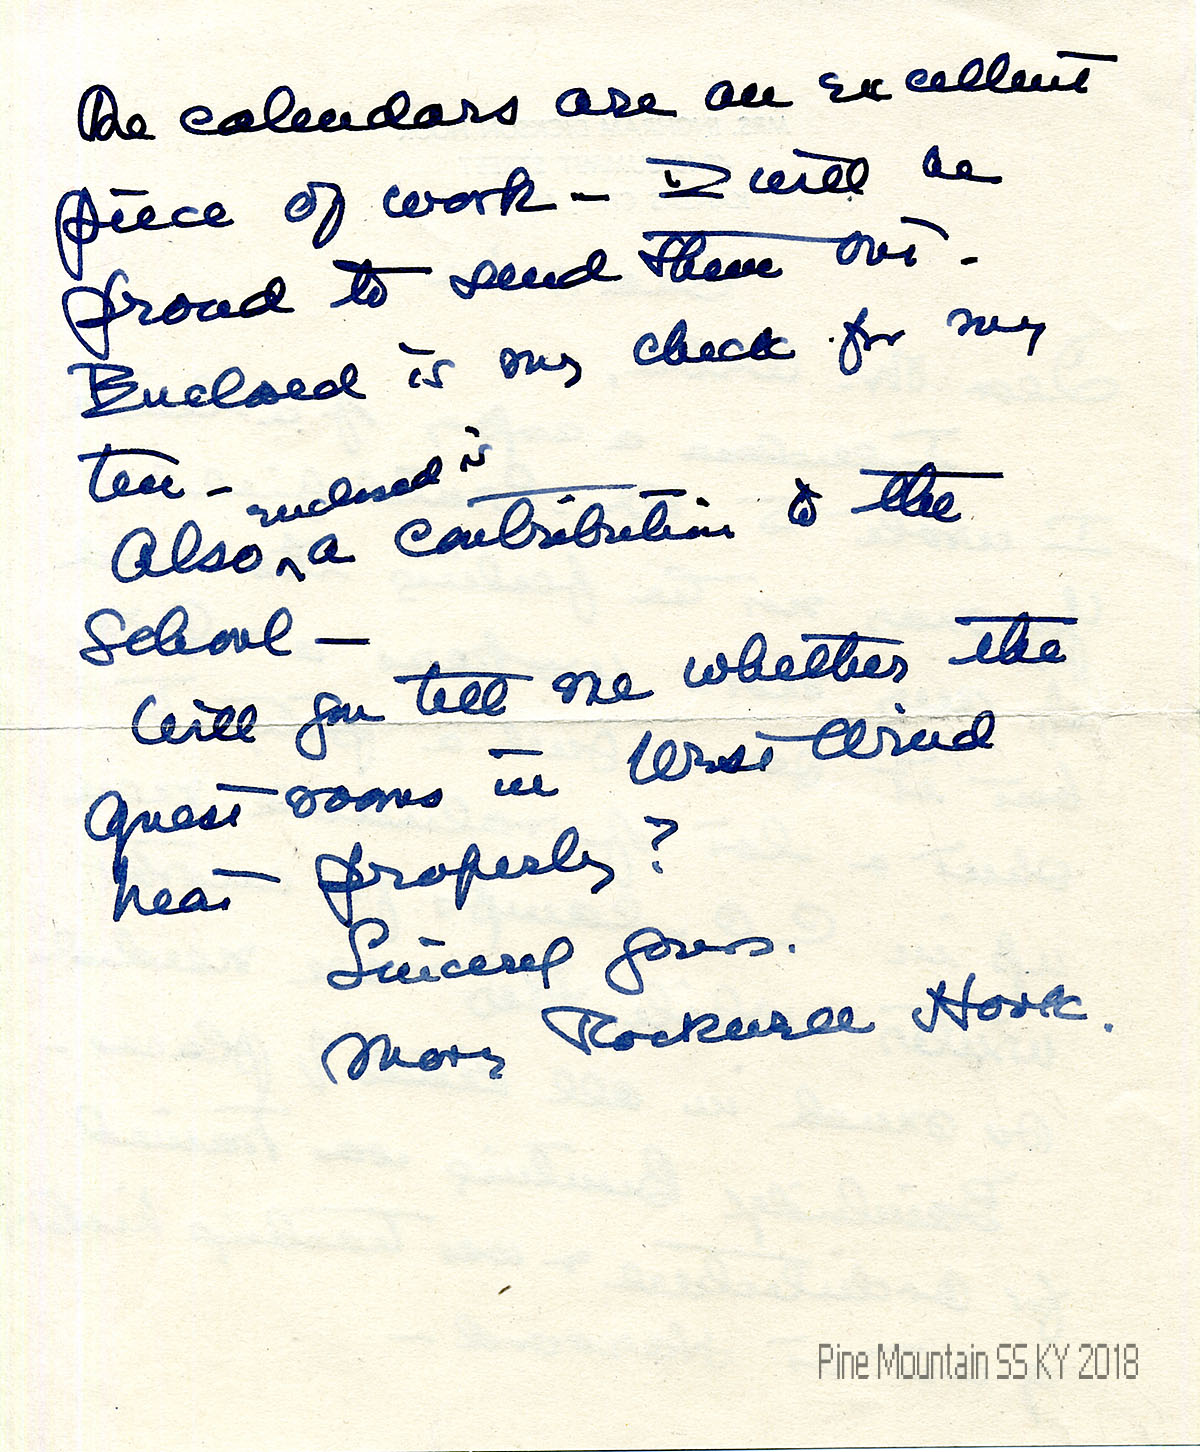 The calendars are an excellent
piece of work – I will be
proud to send them out.
Enclosed is my check for my
ten –
enclosed is
Also ^ a contribution to the
School —
Will you tell me whether the
guest rooms in West Wind
heat properly?
Sincerely yours.
Mary Rockwell Hook.
Pine Mountain SS KY 2018